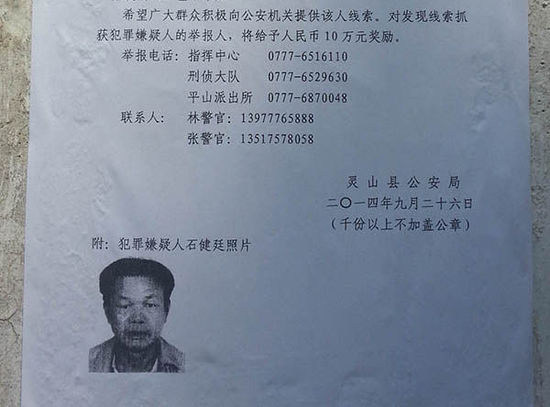 希望广大群众积极向公安机关提供该人线索。对发现线索抓
获犯罪嫌疑人的举报人，将给予人民币 10 万元奖励。
举报电话：指挥中心 0777-6516110
刑侦大队 0777-6529630
平山派出所 0777-6870048
联系人：林警官：13977765888
张警官：13517578058
灵山县公安局
二〇一四年九月二十六日
（千份以上不加盖公章）
附：犯罪嫌疑人石健廷照片